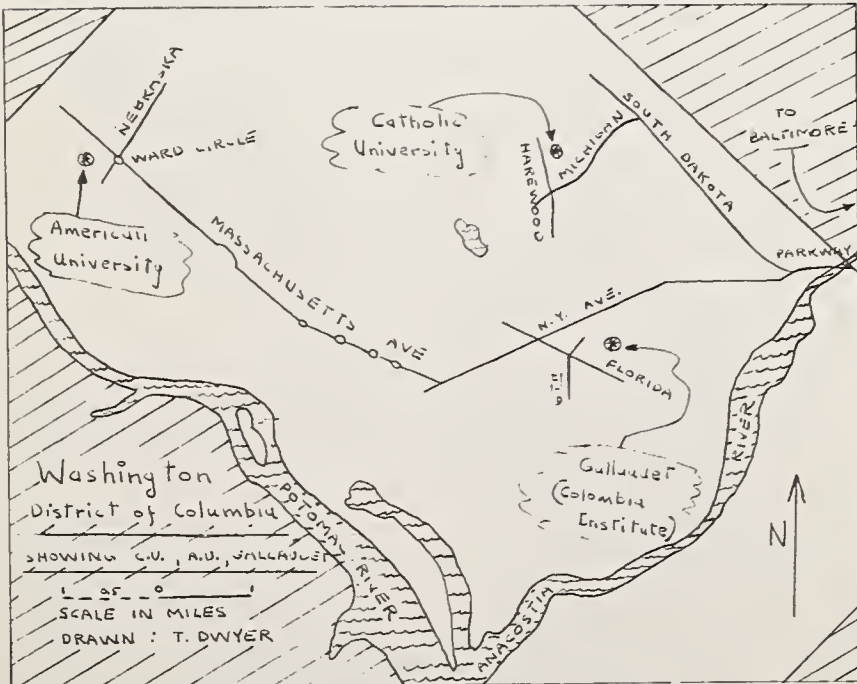 NEBRASKA
WARD CIRCLE
American
University
MASSACHUSETTS AVE
Catholic
University
HAREWOOD
MICHIGAN
SOUTH DAKOTA
TO
BALTIMORE
PARKWAY
N.Y. AVE.
FLORIDA
Gallaudet
(Colombia
Institute)
RIVER
ANACOSTIA
POTOMAC RIVER
N
Washington
District of Columbia
SHOWING C.U., A.U., GALLAUDET
1 0.5 0 1
SCALE IN MILES
DRAWN : T. DWYER